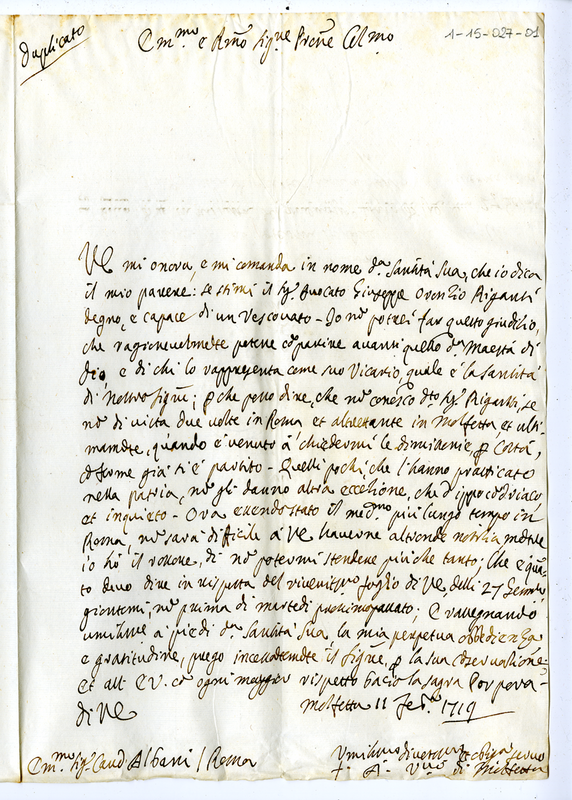 Duplicato
1-15-027-01
Em.mo e R.mo Sig.re P.rone Col.mo
VE mi onora, e mi comanda in nome d.a Santità Sua, che io dica
il mio parere: se stimi il Sig.r Avocato Giuseppe Orenzio Riganti
degno, e capace di un Vescovato - Io nõ potrei far questo giudicio,
che ragionevolmẽte potere cõparire avanti quello d.a Maestà di
Dio, e di chi lo rappresenta come suo Vicario, quale è la Santità
di Nostro Sign.re; che posso dire, che nõ conosco d.to Sig.r Riganti, se
nõ di vista due volte in Roma et altrettante in Molfetta, et ulti-
mamẽte, quando è venuto à chiedermi le dimissorie, p Costà,
cõforme già si è partito - Quelli pochi, che l'hanno pratticato
nella patria, nõ gli danno altra eccezione, che d'ippocõdriaco,
et inquieto - Ora essendo stato il med.mo più lungo tempo in
Roma, nõ sarà difficile à VE haverne altronde notizia mẽtre
io hò il rossore, di nõ potermi stendere più che tanto; Che è quã-
to devo dire in risposta del riverit.mo foglio di VE, delli 27 Genn.o
giontomi, nõ prima di martedi prossimo passato; E rassegnando
umilm.e a' piedi d.a Santità Sua, la mia perpetua obbedienza
e gratitudine, prego incessãtemẽte il Sign.re, p la sua cõservazione
et all' E.V. cõ ogni maggior rispetto bacio la sagra Porpora -
di VE Molfetta 11 Feb.o 1719
Em.mo Sig.r Card Albani / Roma
Umilissimo divotiss.mo et obligat.mo servo
F. A. V.vo di Molfetta